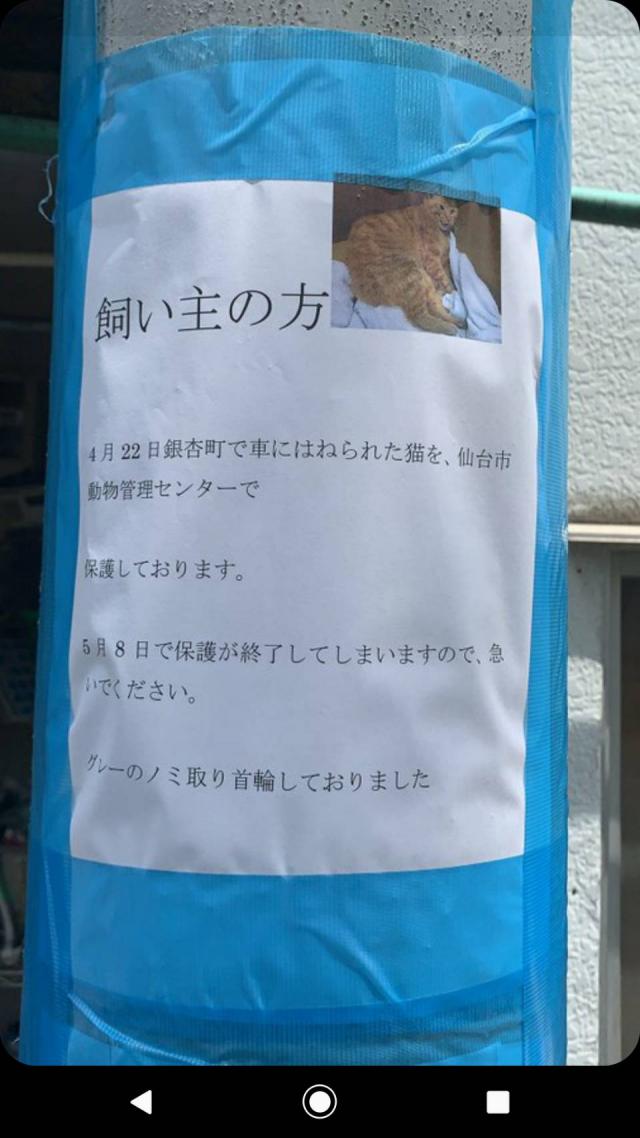 飼い主の方
4月22日銀杏町で車にはねられた猫を、仙台市
動物管理センターで
保護しております。
5月8日で保護が終了してしまいますので、急
いでください。
グレーのノミ取り首輪しておりました